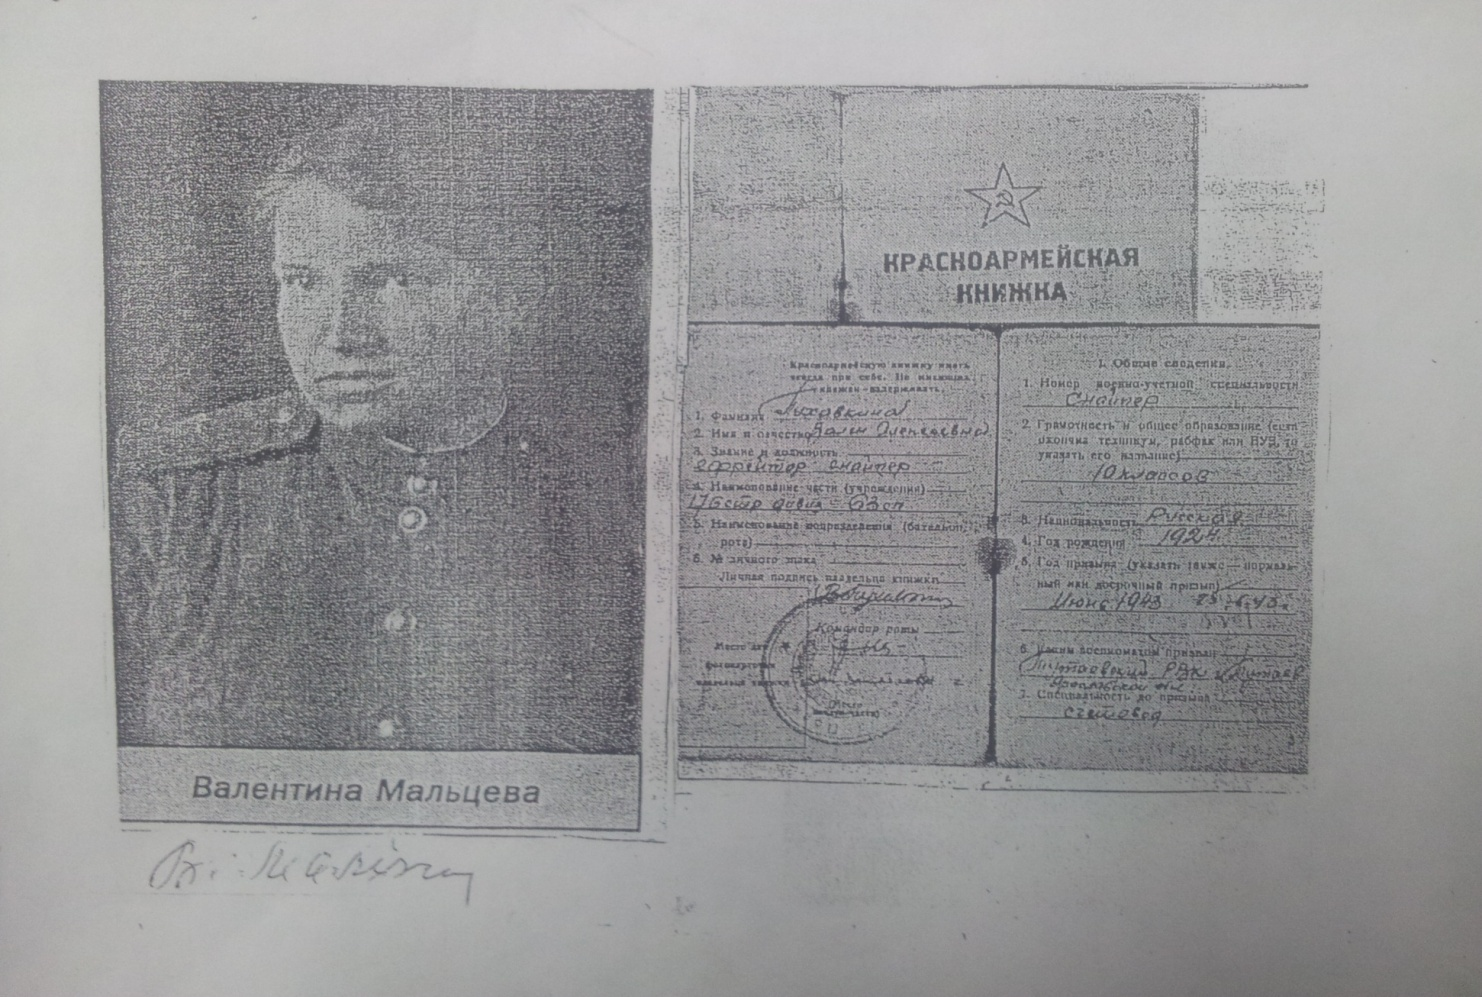 КРАСНОАРМЕЙСКАЯ
КНИЖКА
Красноармейскую книжку иметь
всегда при себе. Не имеющих
книжки - задерживать.
1. Фамилия
2. Имя и отчество Алексеевна
3. Звание и должность
ефрейтор снайпер
4. Наименование части (учреждения)
5. Наименование подразделения (батальон,
рота)
6. № личного знака
Личная подпись владельца книжки
Командир роты
Место для
фотокарточки
владельца книжки
I. Общие сведения
1. Номер военно-учетной специальности
Снайпер
2. Грамотность и общее образование (если
окончил техникум, рабфак или ВУЗ, то
указать его название)
10 классов
3. Национальность Русская
4. Год рождения 1924
5. Год призыва (указать также — нормаль-
ный или досрочный призыв)
Июнь 1943
6. Каким военкоматом призван
Тутаевский РВК
7. Специальность до призыва
счетовод
Валентина Мальцева